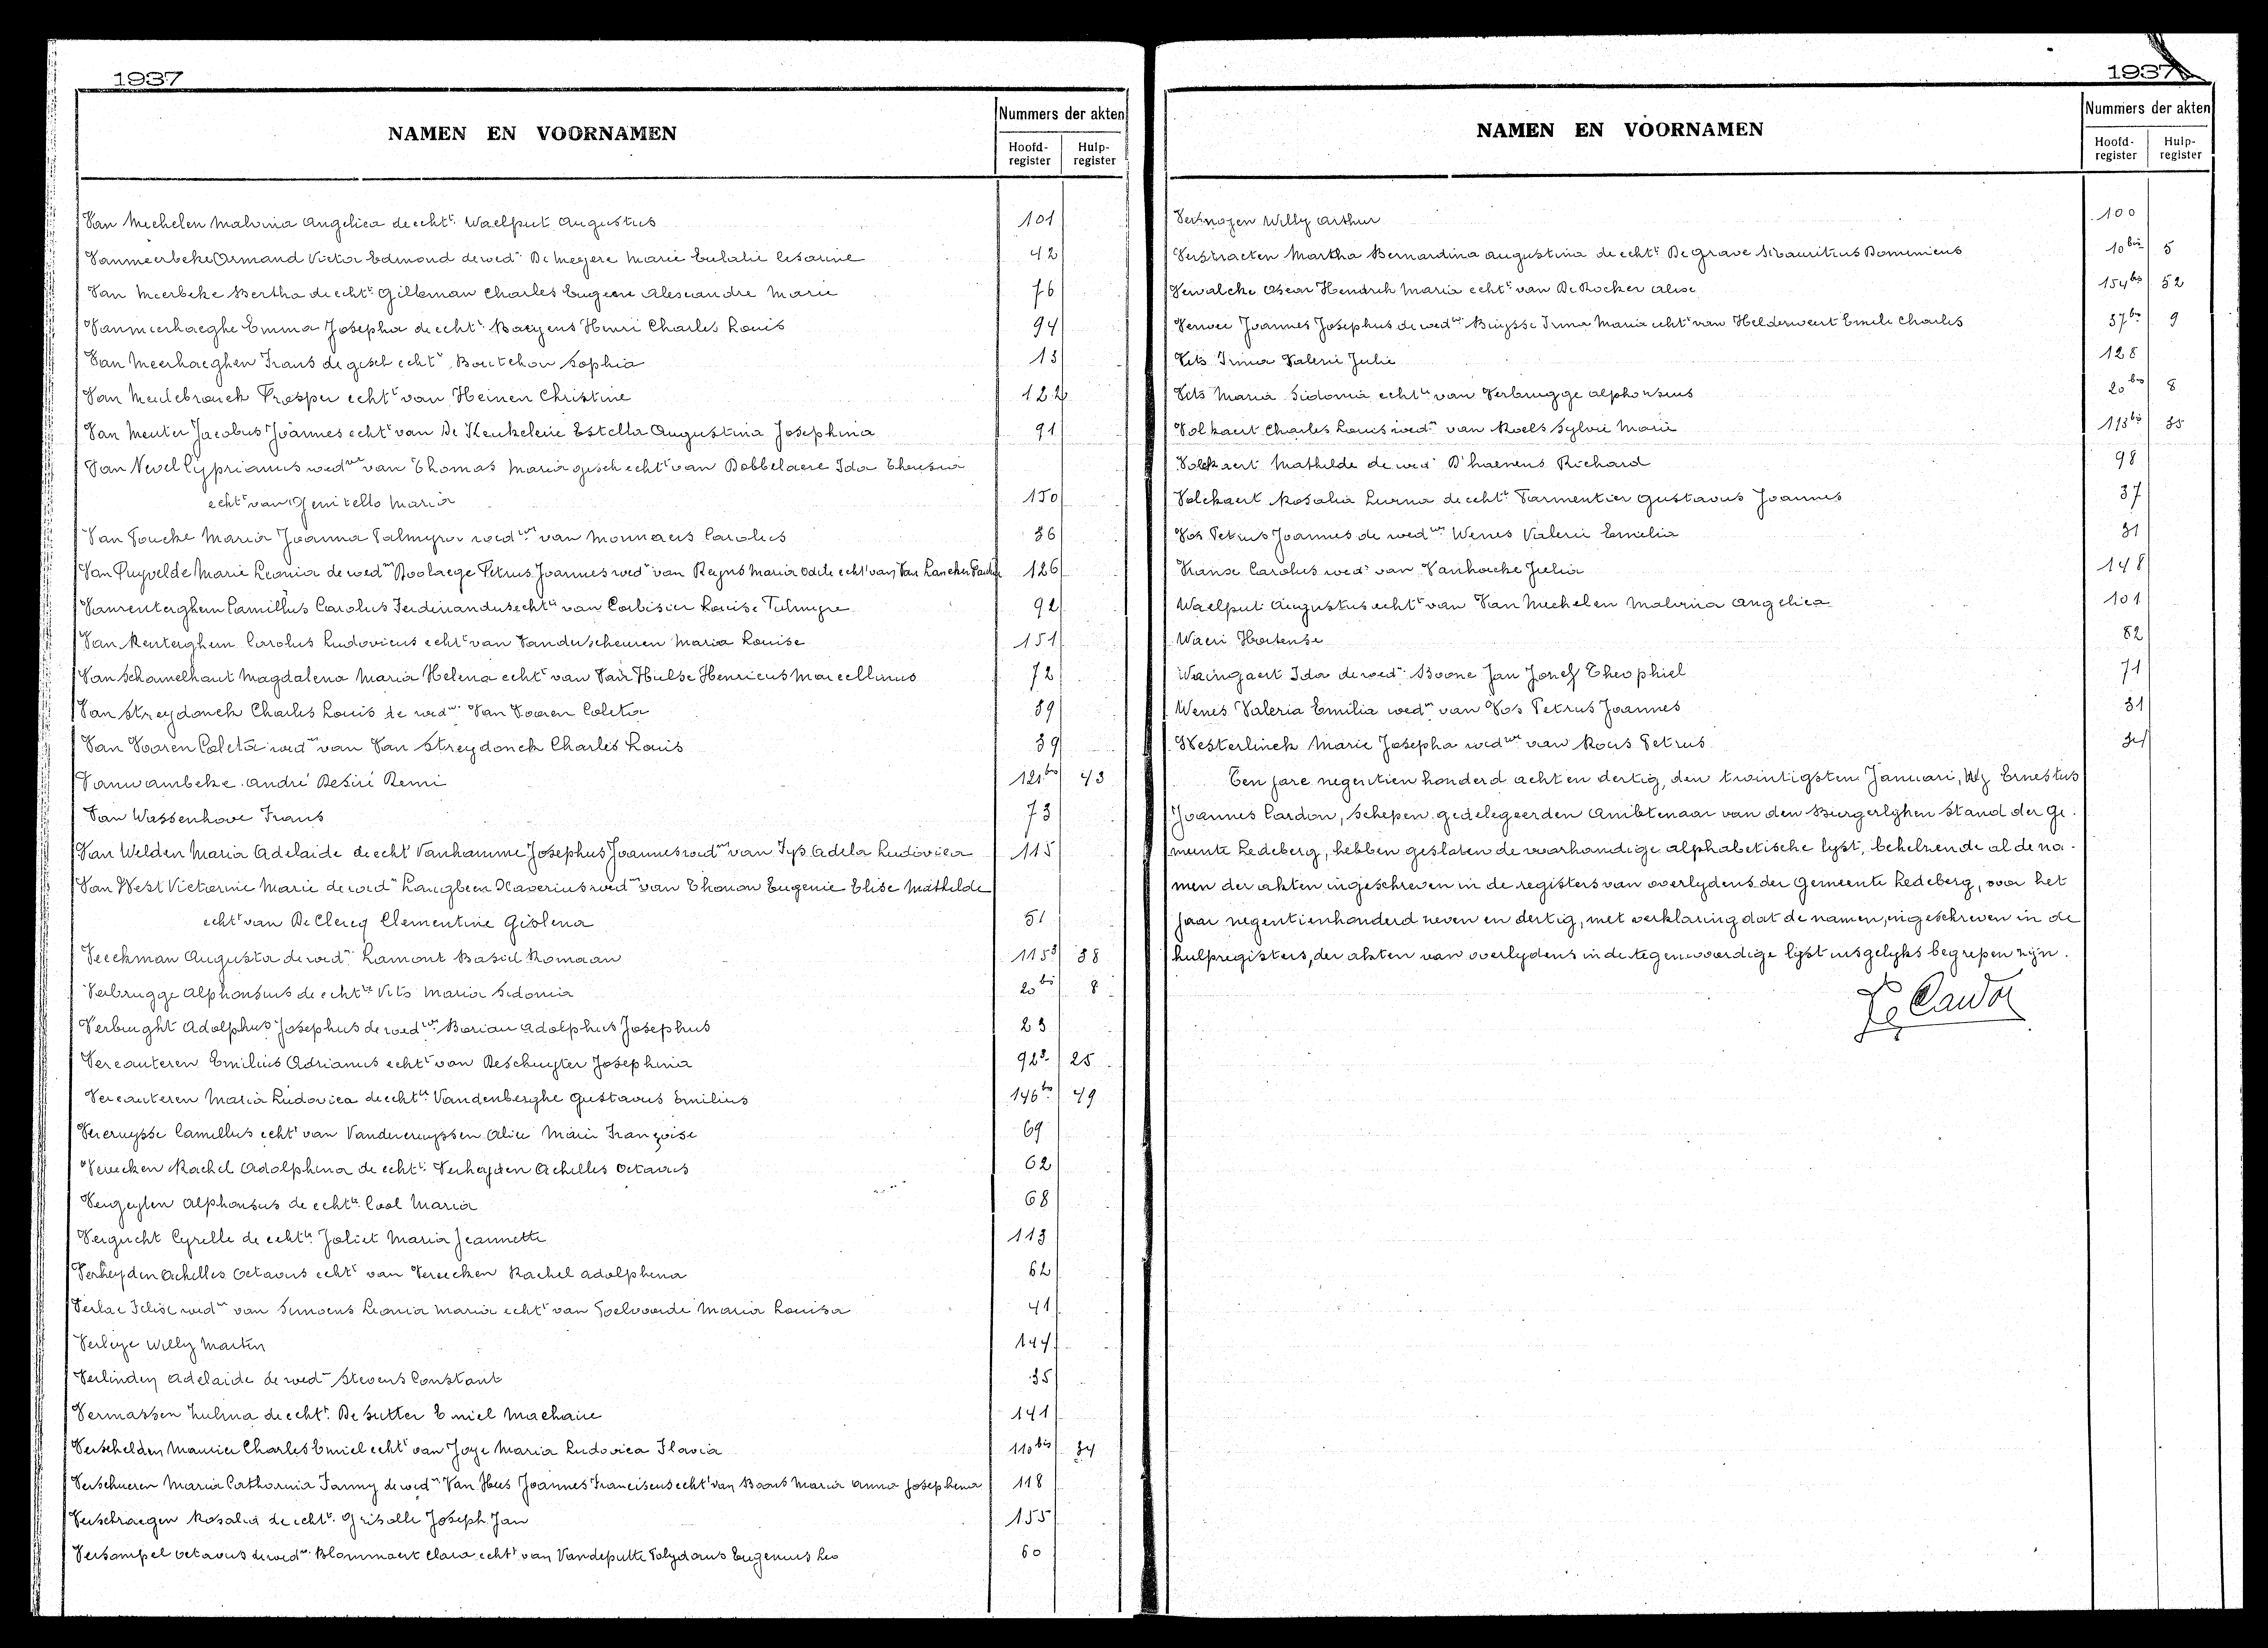 1937
NAMEN EN VOORNAMEN
Nummers der akten
Hoofd-register
Hulp-register
Van Mechelen Malvina Angelica de echte Waelput Augustus 101
Vanmeerbeke Armand Victor Edmond de wedr De Meyere Marie Eulalie Césarine 42
Van Meerbeke Bertha de echte Gilleman Charles Eugene Alexandre Marie 76
Vanmeerhaeghe Emma Josepha de echte Baeyens Henri Charles Louis 94
Van Meerhaeghen Frans de gesch echte Boutchon Sophia 13
Van Meulebrouck Prosper echtt van Heinen Christine 122
Van Meuter Jacobus Joannes echtt van De Keukeleire Estella Augustina Josephina 91
Van Nevel Cyprianus wedwr van Thomas Maria gesch echtt van Dobbelaere Ida Theresia
echtt van Genitello Maria 150
Van Poucke Maria Joanna Palmyra wedwe van Monnaers Carolus 36
Van Puyvelde Marie Leonia de wedwe Roolaege Petrus Joannes wedr van Reyns Maria Odile echtt van Van Lancker 126
Vanrenterghem Camillus Carolus Ferdinandus echtt van Corbisier Louise Palmyre 92
Van Renterghem Carolus Ludovicus echtt van Vanderscheuren Maria Louise 151
Van Schamelhout Magdalena Maria Helena echtt van Van Hulse Henricus Marcellinus 72
Van Streydonck Charles Louis de wedwr Van Vooren Coleta 39
Van Vooren Coleta wedwe van Van Streydonck Charles Louis 39
Vanwambeke André Desiré Remi 121bis 43
Van Wassenhove Frans 73
Van Welden Maria Adelaide de echt Vanhamme Josephus Joannes wedwr van Tys Adela Ludovica 115
Van West Victorine Marie de wede Langbeen Xaverius wedwr van Thonon Eugenie Elise Mathilde
echtt van De Clercq Clementine Gislena 51
Veeckman Augusta de wede Lamont Basiel Romaan 115³ 38
Verbrugge Alphonsus de echtte Vits Maria Sidonia 20bis 8
Verbught Adolphus Josephus de wedwr Borian Adolphus Josephus 23
Vercauteren Emilius Adrianus echtt van Deschuyter Josephina 92³ 25
Vercauteren Maria Ludovica de echtte Vandenberghe Gustavus Emilius 146bis 49
Vercruysse Camillus echtt van Vandercruyssen Alice Marie Françoise 69
Vereecken Rachel Adolphina de echtte Verheyden Achilles Octavus 62
Vergeylen Alphonsus de echtte Cool Maria 68
Vergucht Cyrille de echtte Joliet Maria Jeannette 113
Verheyden Achilles Octavus echtt van Vereecken Rachel Adolphina 62
Verlae Felix wedwr van Simoens Leonia Maria echtt van Poelvoorde Maria Louisa 41
Verleye Willy Marten 144
Verlinden Adelaide de wedwe Stevens Constant 35
Vermassen Zulma de echtte De Sutter Emiel Machaire 141
Verschelden Maurice Charles Emiel echtt van Joye Maria Ludovica Flavia 110bis 34
Verschueren Maria Catharina Fanny de wedwe Van Hees Joannes Franciscus echtt van Boons Maria Anna Josephina 118
Verschraegen Rosalia de echtte Grisolle Joseph Jan 155
Versompel Octavus de wedwr Blommaert Clara echtt van Vandeputte Polydorus Eugenius Leo 60
1937
NAMEN EN VOORNAMEN
Nummers der akten
Hoofd-register
Hulp-register
Vernoyen Willy Arthur 100
Verstraeten Martha Bernardina Augustina de echtte De Grave Mauritius Dominicus 10bis 5
Verwalcke Oscar Hendrik Maria echtt van De Rocker Alise 154bis 52
Verwee Joannes Josephus de wedwr Buysse Irma Maria echtt van Helderweert Emile Charles 37bis 9
Vits Irma Valerie Julie 128
Vits Maria Sidonia echtte van Verbrugge Alphonsus 20bis 8
Volkaert Charles Louis wedwr van Roels Sylvie Marie 113bis 35
Volckaert Mathilde de wede D'haenens Richard 98
Volckaert Rosalia Lucina de echtte Parmentier Gustavus Joannes 37
Vos Petrus Joannes de wedwr Wenes Valerie Emilia 31
Vranse Carolus wedr van Vanhacke Julia 148
Waelput Augustus echtt van Van Mechelen Malvina Angelica 101
Waeri Hortense 82
Waeingaert Ida de wede Boone Jan Jozef Theophiel 71
Wenes Valeria Emilia wedwe van Vos Petrus Joannes 31
Westerlinck Marie Josepha wedwe van Roets Petrus 34
Ten jare negentien honderd acht en dertig, den twintigsten Januari, Wij Ernestus
Joannes Cardon, Schepen gedelegeerden Ambtenaar van den Burgerlijken Stand der ge-
meente Ledeberg, hebben gesloten de voorhandige alphabetische lijst, behelzende al de na-
men der akten ingeschreven in de registers van overlijdens der Gemeente Ledeberg, voor het
jaar negentienhonderd zeven en dertig, met verklaring dat de namen, ingeschreven in de
hulpregisters, der akten van overlijdens in de tegenwoordige lijst insgelijks begrepen zijn.
Cardon